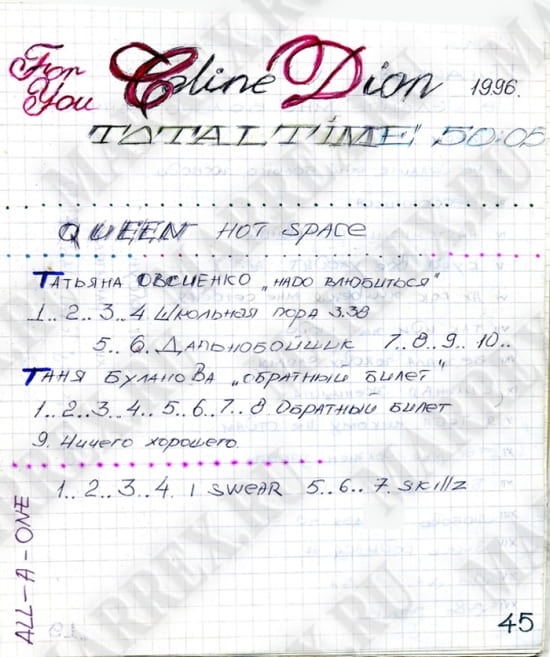 For You Celine Dion 1996.
TOTAL TIME 50:05
QUEEN HOT SPACE
ТАТЬЯНА ОВСИЕНКО „НАДО ВЛЮБИТЬСЯ"
1..2..3..4 Школьная пора 3.38
5.. 6. ДАЛЬНОБОЙЩИК 7..8..9.. 10..
ТАНЯ БУЛАНОВА „ОБРАТНЫЙ БИЛЕТ"
1..2..3..4.. 5..6..7..8. ОБРАТНЫЙ БИЛЕТ
9. Ничего хорошего.
ALL-A-ONE
1..2..3..4. I SWEAR 5..6..7. Skillz
45
MARREX.RU